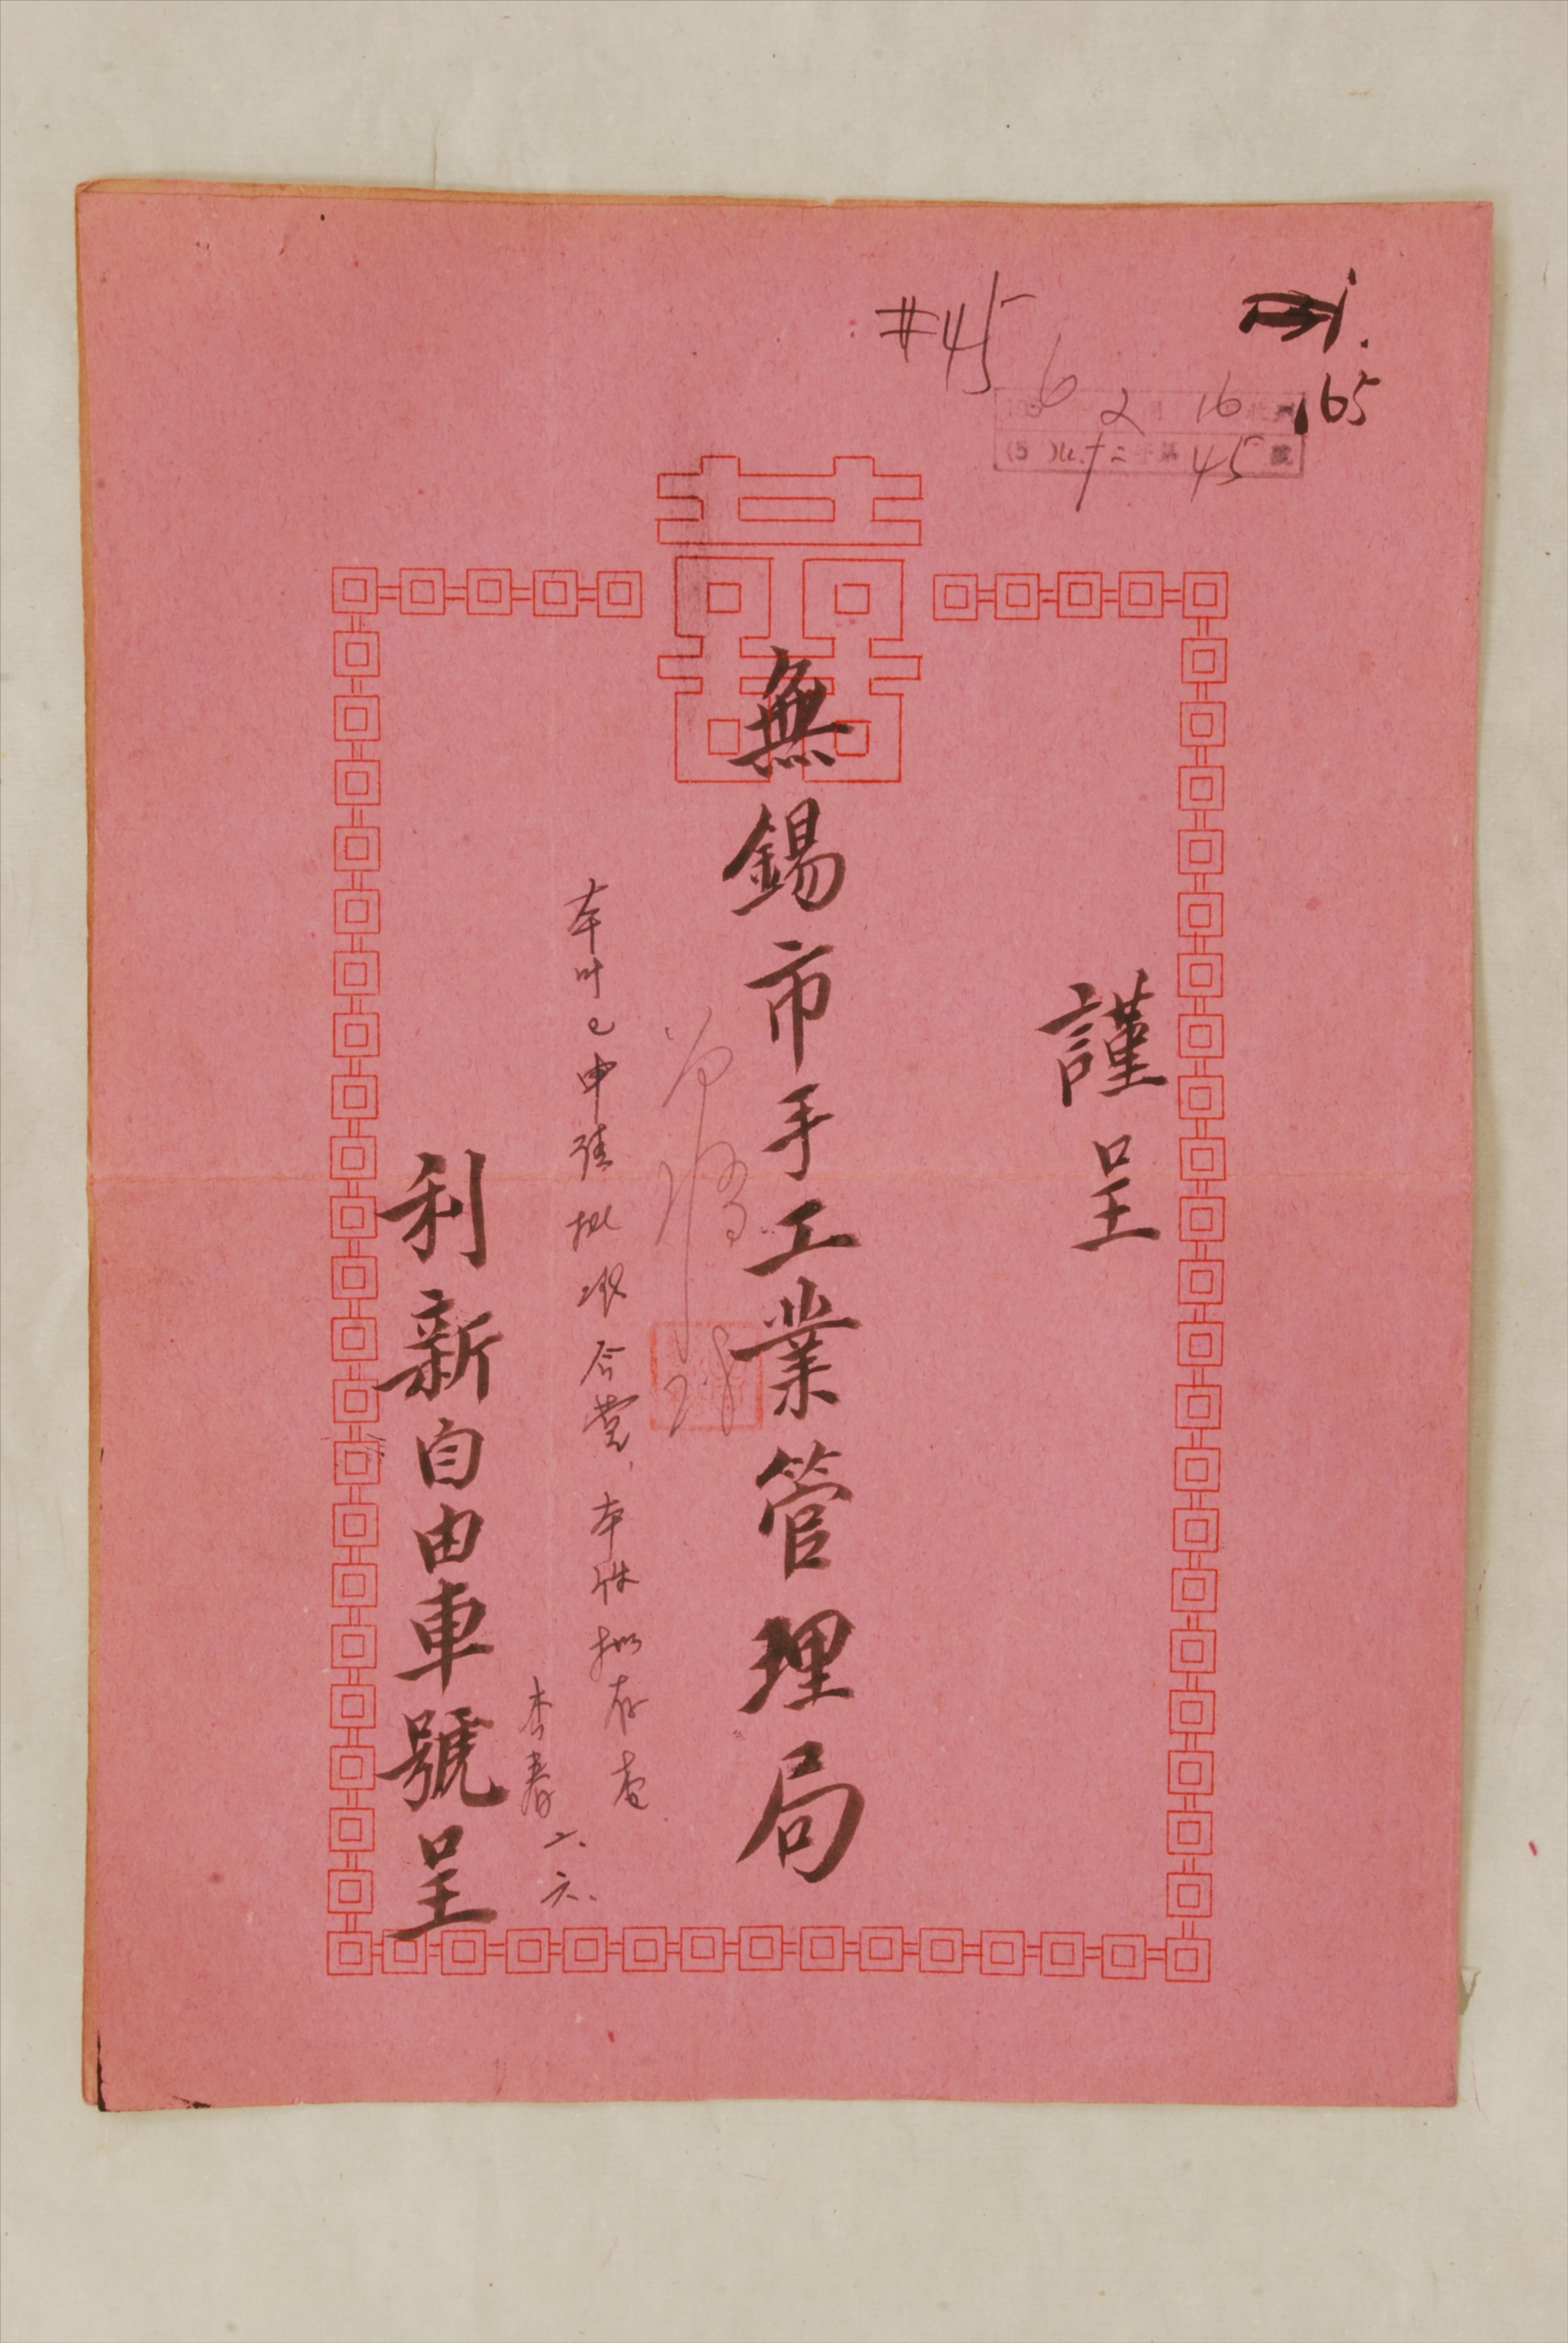 #45
165
1956年2月16日收到
字第45號
囍
謹呈
無錫市手工業管理局
申請批准合營，本件擬存查
李春 二、六、
利新自由車號呈